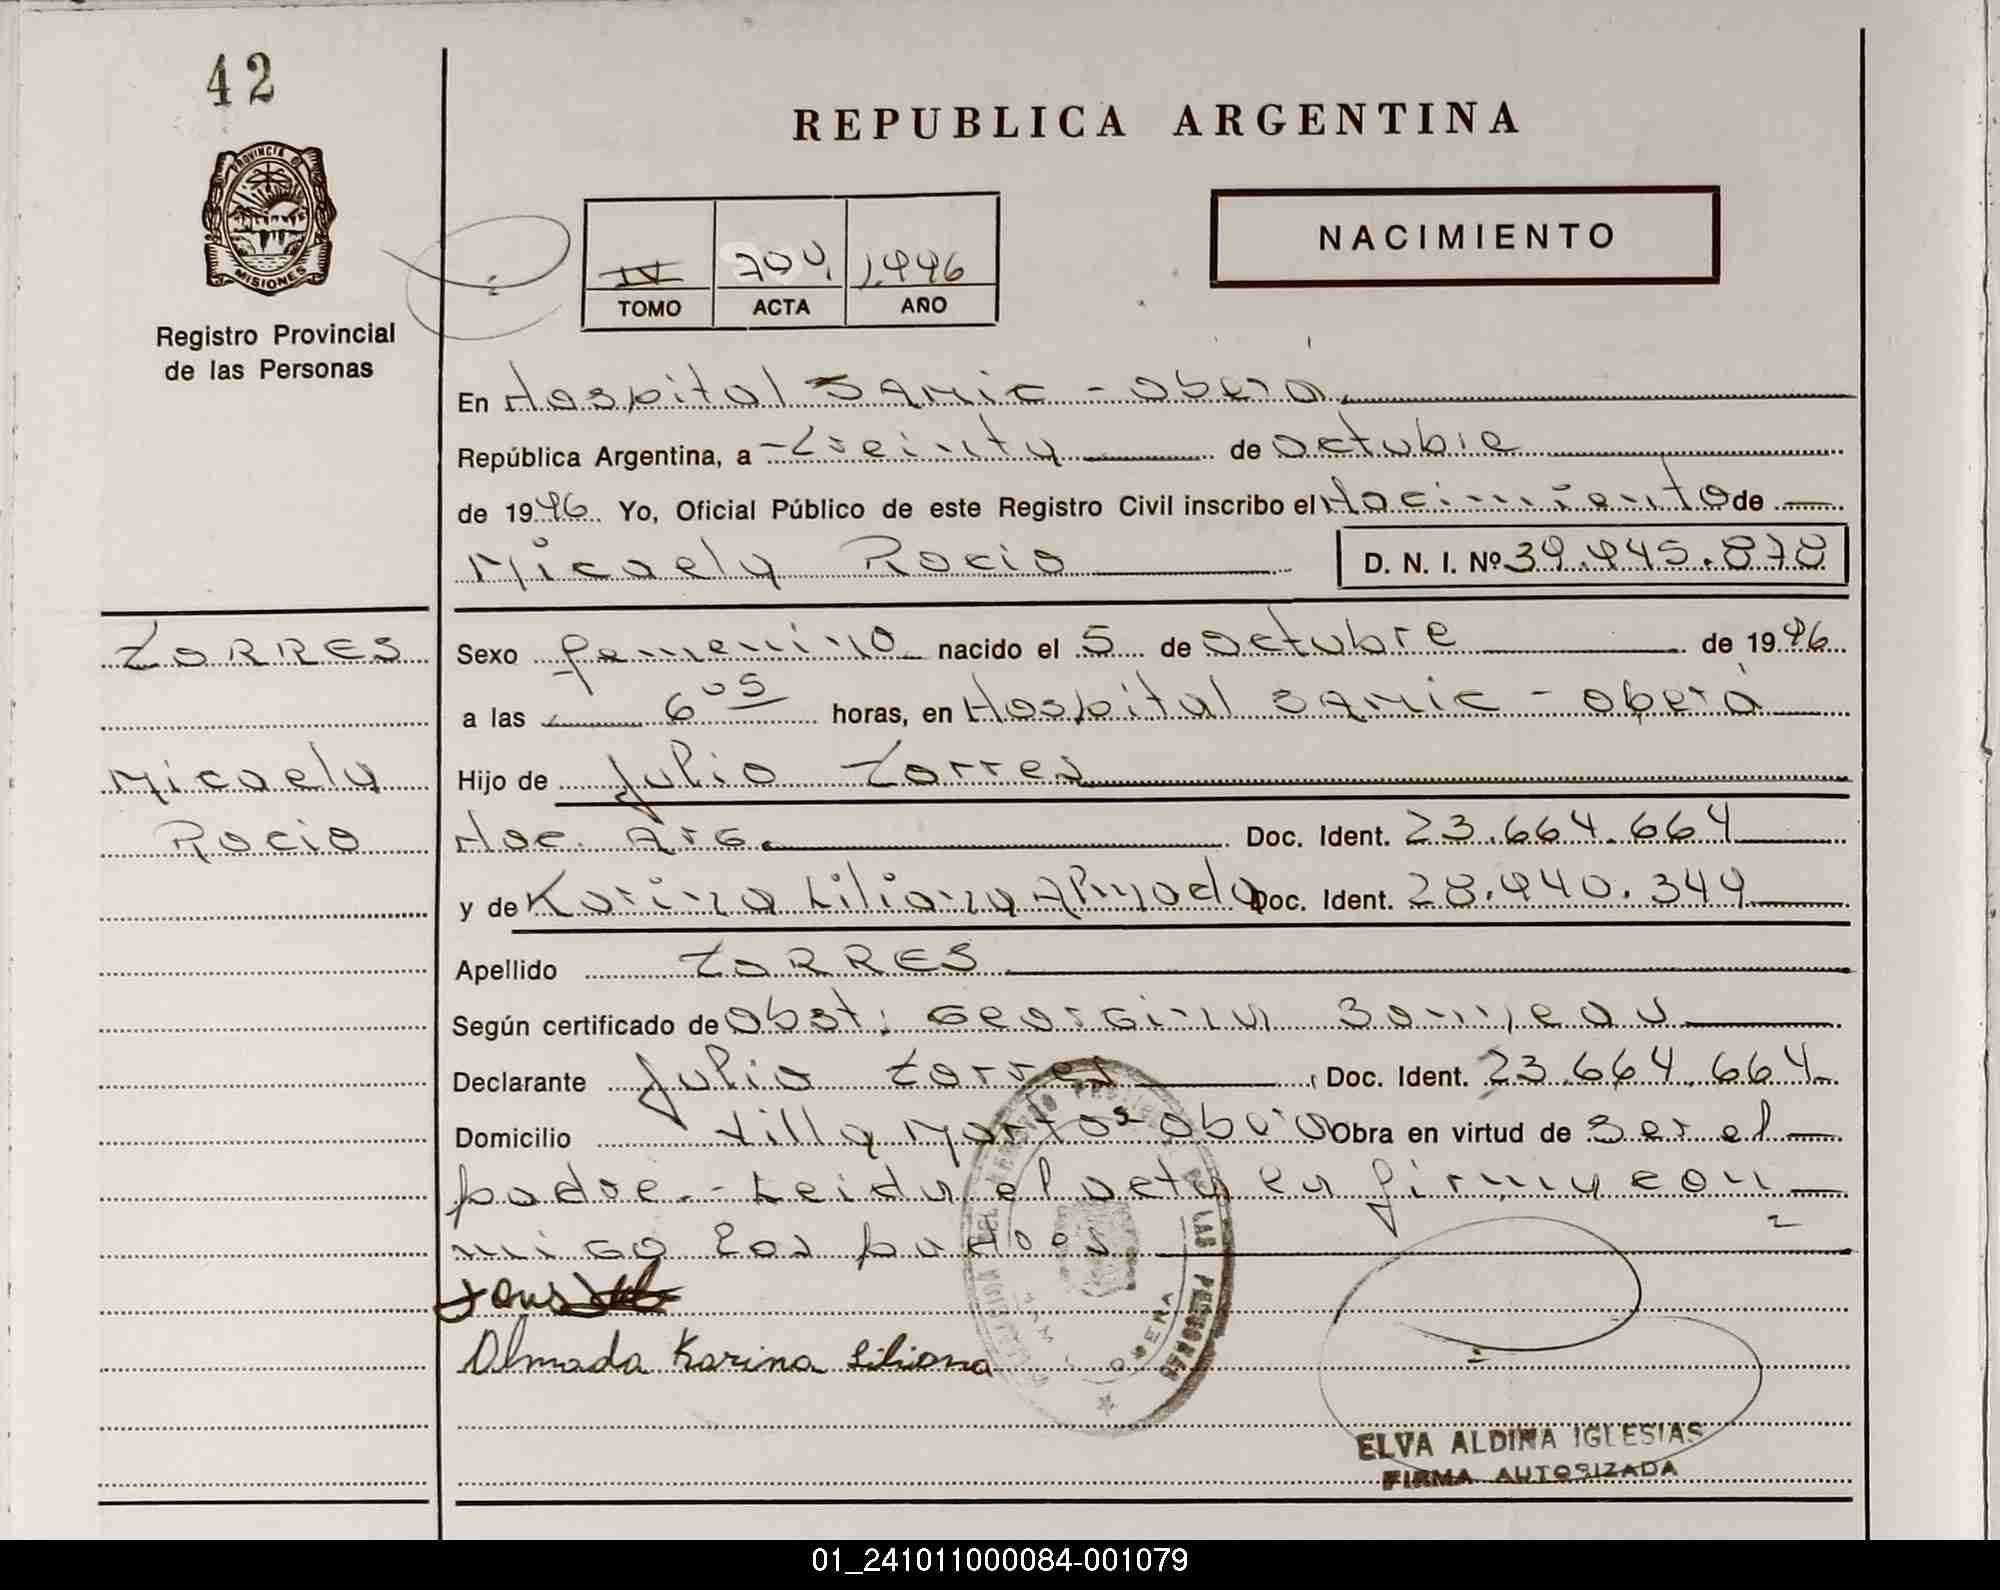 42
REPUBLICA ARGENTINA
PROVINCIA DE
MISIONES
Registro Provincial
de las Personas
IV 704 1.996
TOMO ACTA AÑO
NACIMIENTO
En Hospital SAMIC - Oberá
República Argentina, a - treinta de octubre
de 1996 Yo, Oficial Público de este Registro Civil inscribo el Nacimiento de
Micaela Rocio D. N. I. Nº 39.945.878
TORRES
Sexo femenino nacido el 5 de octubre de 1996
a las 6 05 horas, en Hospital SAMIC - Oberá
Micaela
Hijo de Julio Torres
Rocio
Nac. Arg. Doc. Ident. 23.664.664
y de Karina Liliana Almada Doc. Ident. 28.940.349
Apellido TORRES
Según certificado de Obst: Georgina
Declarante Julio Torres Doc. Ident. 23.664.664
Domicilio Villa Martos Oberá Obra en virtud de ser el
padre.- Leida el acta la firma con
migo los padres
Almada Karina Liliana
LAS PERSONAS
OBERA
ELVA ALDINA IGLESIAS
FIRMA AUTORIZADA
01_241011000084-001079